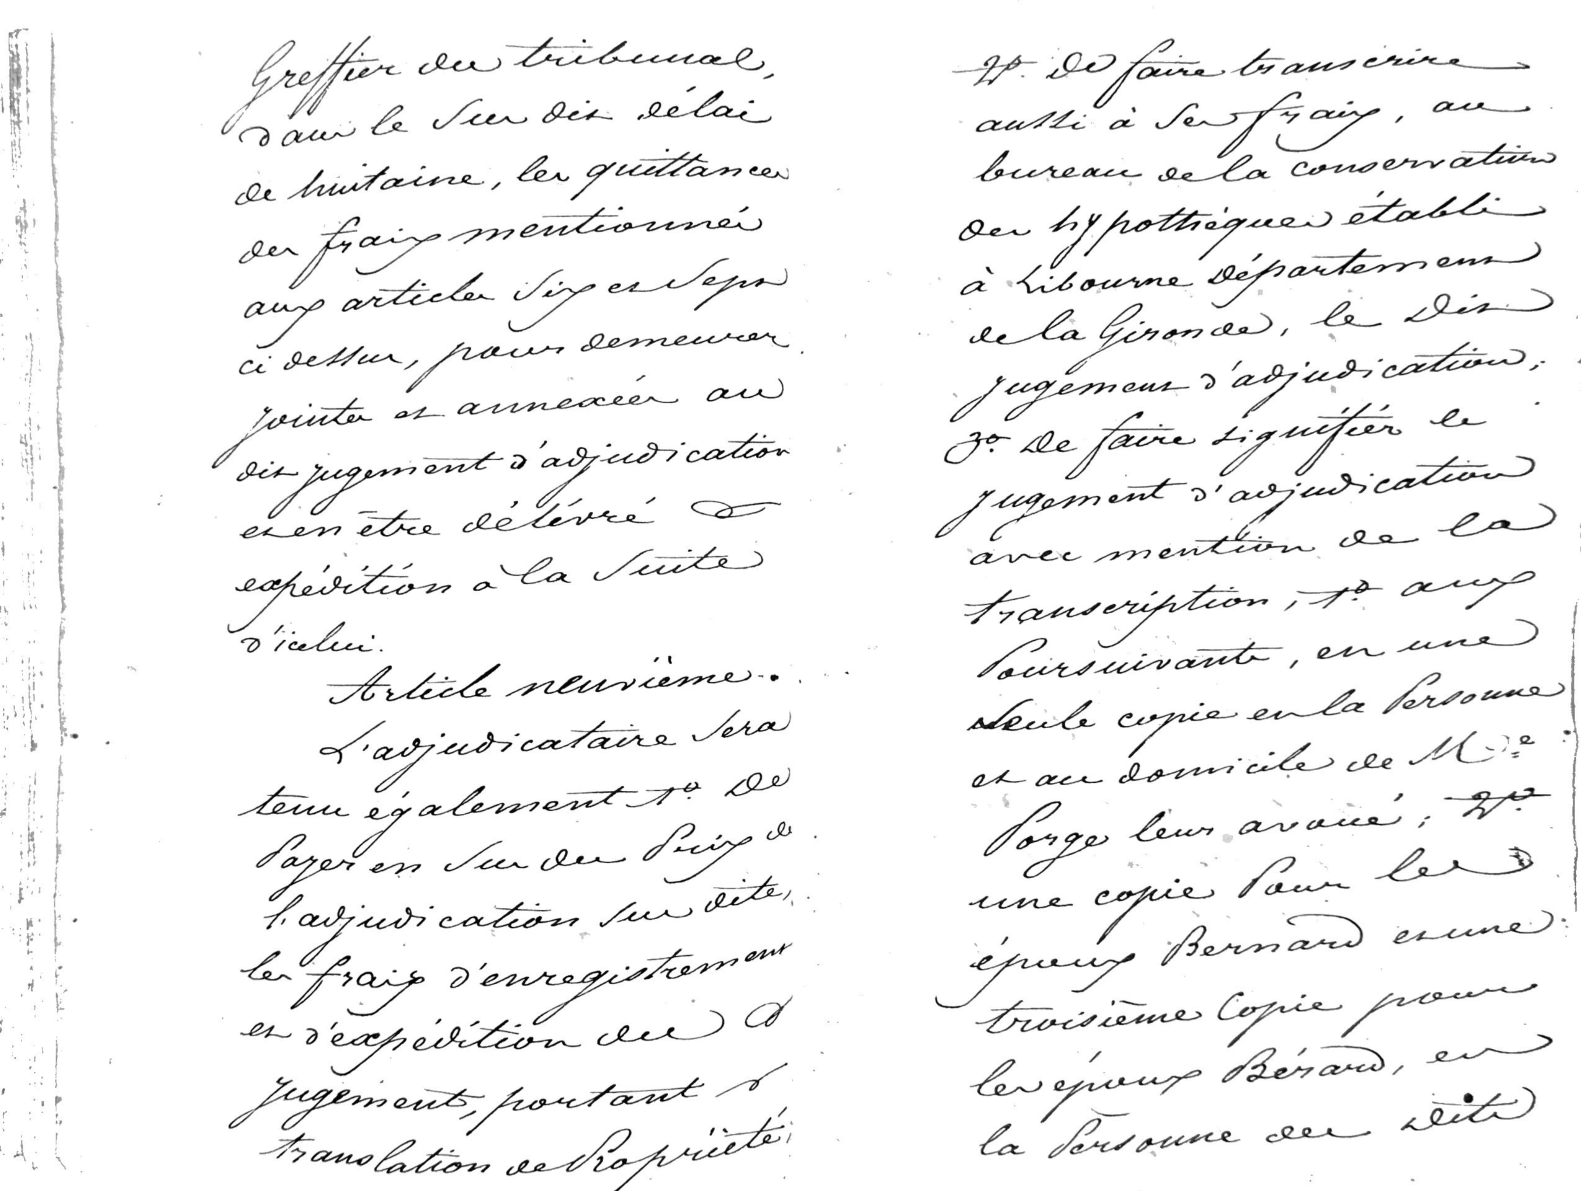 Greffier du tribunal,
dans le sus dit délai
de huitaine, les quittances
des fraix mentionnés
aux articles six et sept
ci dessus, pour demeurer
jointes et annexées au
dit jugement d'adjudication
et en être délivré
expédition à la suite
d'icelui.
Article neuvième.
L'adjudicataire sera
tenu également 1º. De
Payer en sus du Prix de
l'adjudication sus dite,
les fraix d'enregistrement
et d'expédition du
jugement, portant
translation de Propriété,
2º. De faire transcrire
aussi à ses fraix, au
bureau de la conservation
des hypothèques établi
à Libourne département
de la Gironde, le dit
jugement d'adjudication;
3º. De faire signifier le
jugement d'adjudication
avec mention de la
transcription, 1º aux
Poursuivants, en une
seule copie en la Personne
et au domicile de M
Porge leur avoué; 2º
une copie Pour les
époux Bernard et une
troisième Copie pour
les époux Bérard, en
la Personne des dits